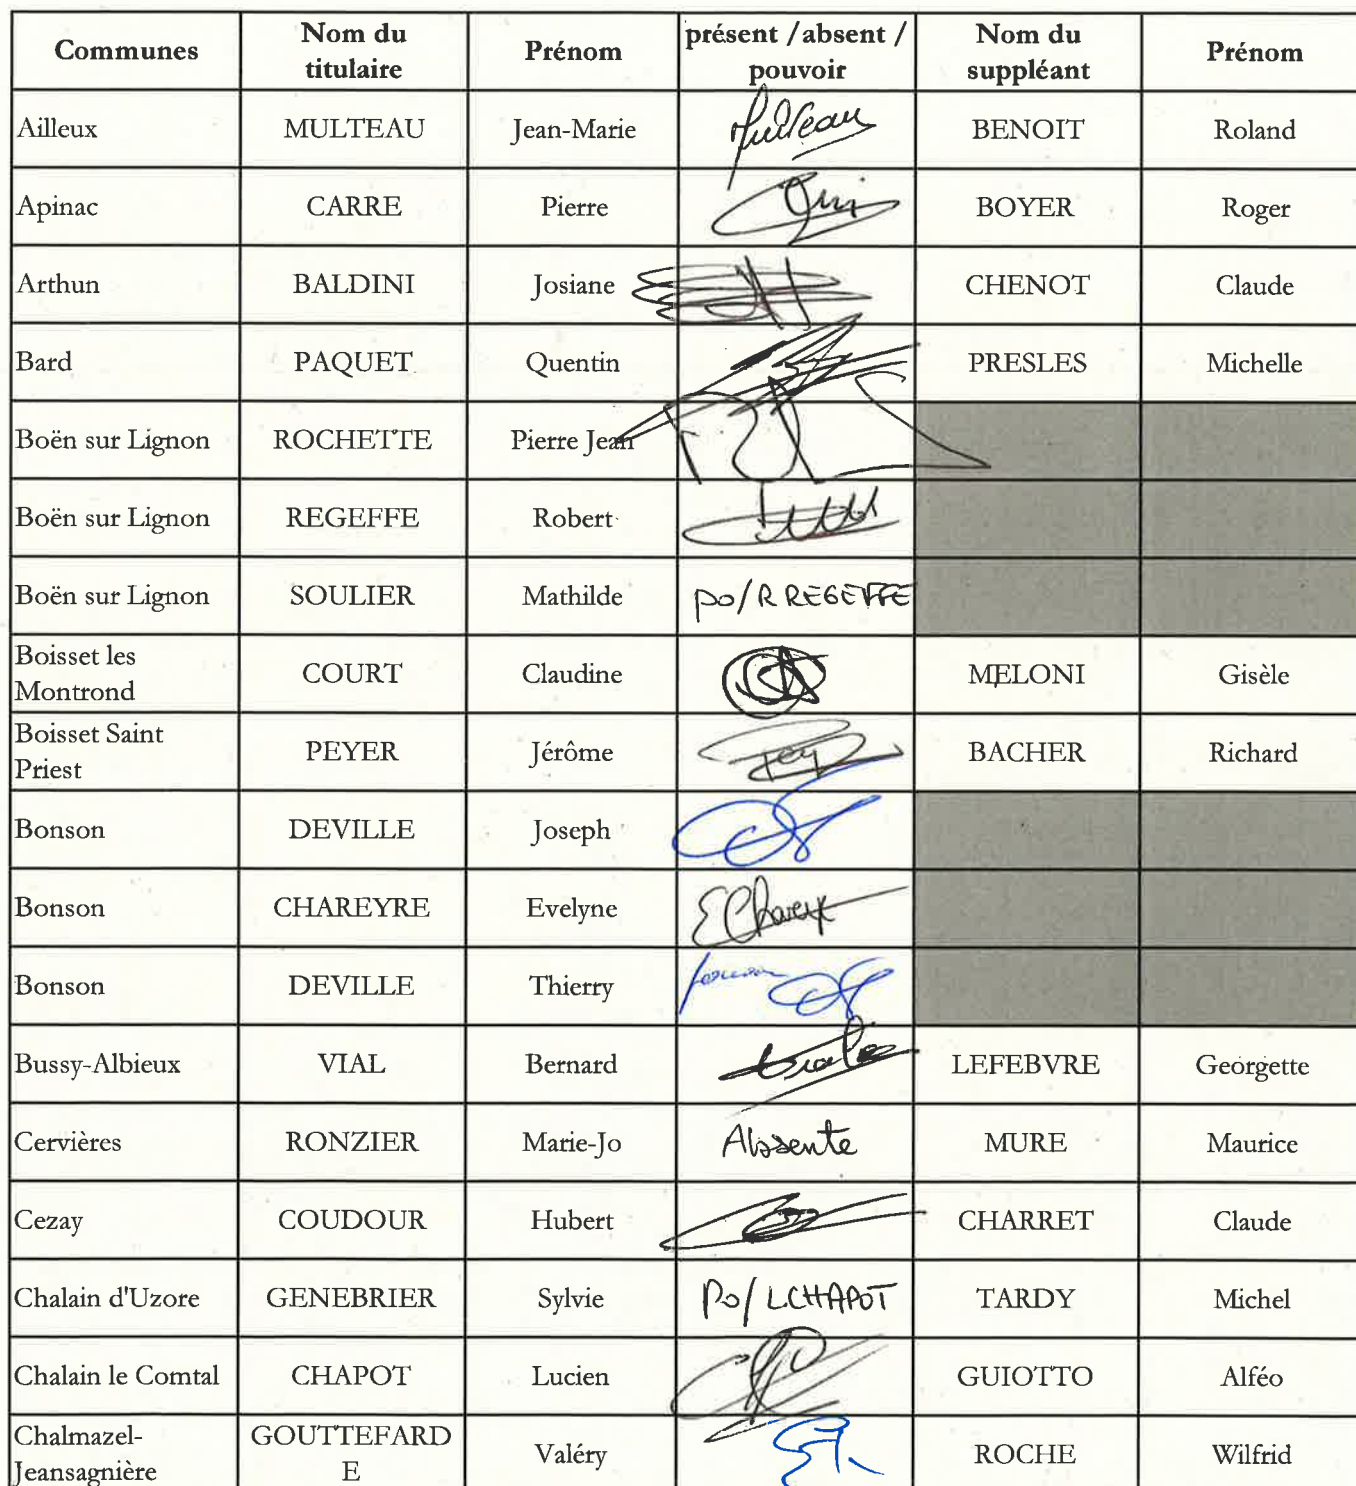 Communes Nom du titulaire Prénom présent /absent / pouvoir Nom du suppléant Prénom
Ailleux MULTEAU Jean-Marie Multeau BENOIT Roland
Apinac CARRE Pierre BOYER Roger
Arthun BALDINI Josiane CHENOT Claude
Bard PAQUET Quentin PRESLES Michelle
Boën sur Lignon ROCHETTE Pierre Jean
Boën sur Lignon REGEFFE Robert
Boën sur Lignon SOULIER Mathilde po/R REGEFFE
Boisset les Montrond COURT Claudine MELONI Gisèle
Boisset Saint Priest PEYER Jérôme BACHER Richard
Bonson DEVILLE Joseph
Bonson CHAREYRE Evelyne
Bonson DEVILLE Thierry
Bussy-Albieux VIAL Bernard LEFEBVRE Georgette
Cervières RONZIER Marie-Jo Absente MURE Maurice
Cezay COUDOUR Hubert CHARRET Claude
Chalain d'Uzore GENEBRIER Sylvie Po/ LCHAPOT TARDY Michel
Chalain le Comtal CHAPOT Lucien GUIOTTO Alféo
Chalmazel-Jeansagnière GOUTTEFARDE Valéry ROCHE Wilfrid